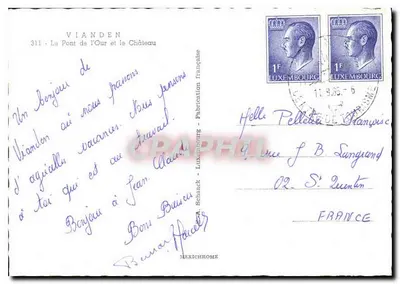 VIANDEN
311 - Le Pont de l'Our et le Château
Un bonjour de
Vianden où nous passons
d' vacances. Nous pensons
à toi qui est au travail.
Bonjour à Jean
Bons Baisers
1F
LUXEMBOURG
1F
LUXEMBOURG
Melle Pelletier Françoise
rue J B Langrand
02. St Quentin
FRANCE
Luxembourg - Fabrication française
MEXICHROME